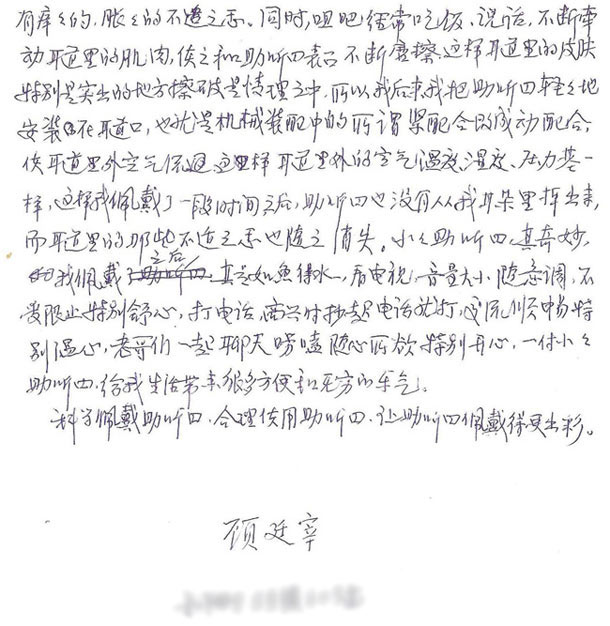 有痒々的，胀々的不适之感。同时，咀吧经常吃饭、说话，不断牵
动耳道里的肌肉，使之和助听四表面不断磨擦，这样耳道里的皮肤
特别是突出的地方擦破是情理之中，所以我后来我把助听四轻々地
安装在耳道口，也就是机械装配中的所谓紧配合的成动配合，
使耳道里外空气流通，这里样耳道里外的空气温度、湿度、压力基一
样，这样我佩戴了一段时间之后，助听四也没有从我耳朵里掉出来，
而耳道里的那些不适之感也随之消失。小々助听四，真奇妙，
我佩戴之后，真是如鱼得水，看电视，音量大小随意调，不
受限止特别舒心，打电话，高兴时抄起电话就打，交流顺畅特
别温心，老哥们一起聊天唠嗑随心所欲特别开心，一付小々
助听四，给我生活带来很多方便和无穷的乐气。
科学佩戴助听四，合理使用助听四，让助听四佩戴得更出彩。
顾廷宰